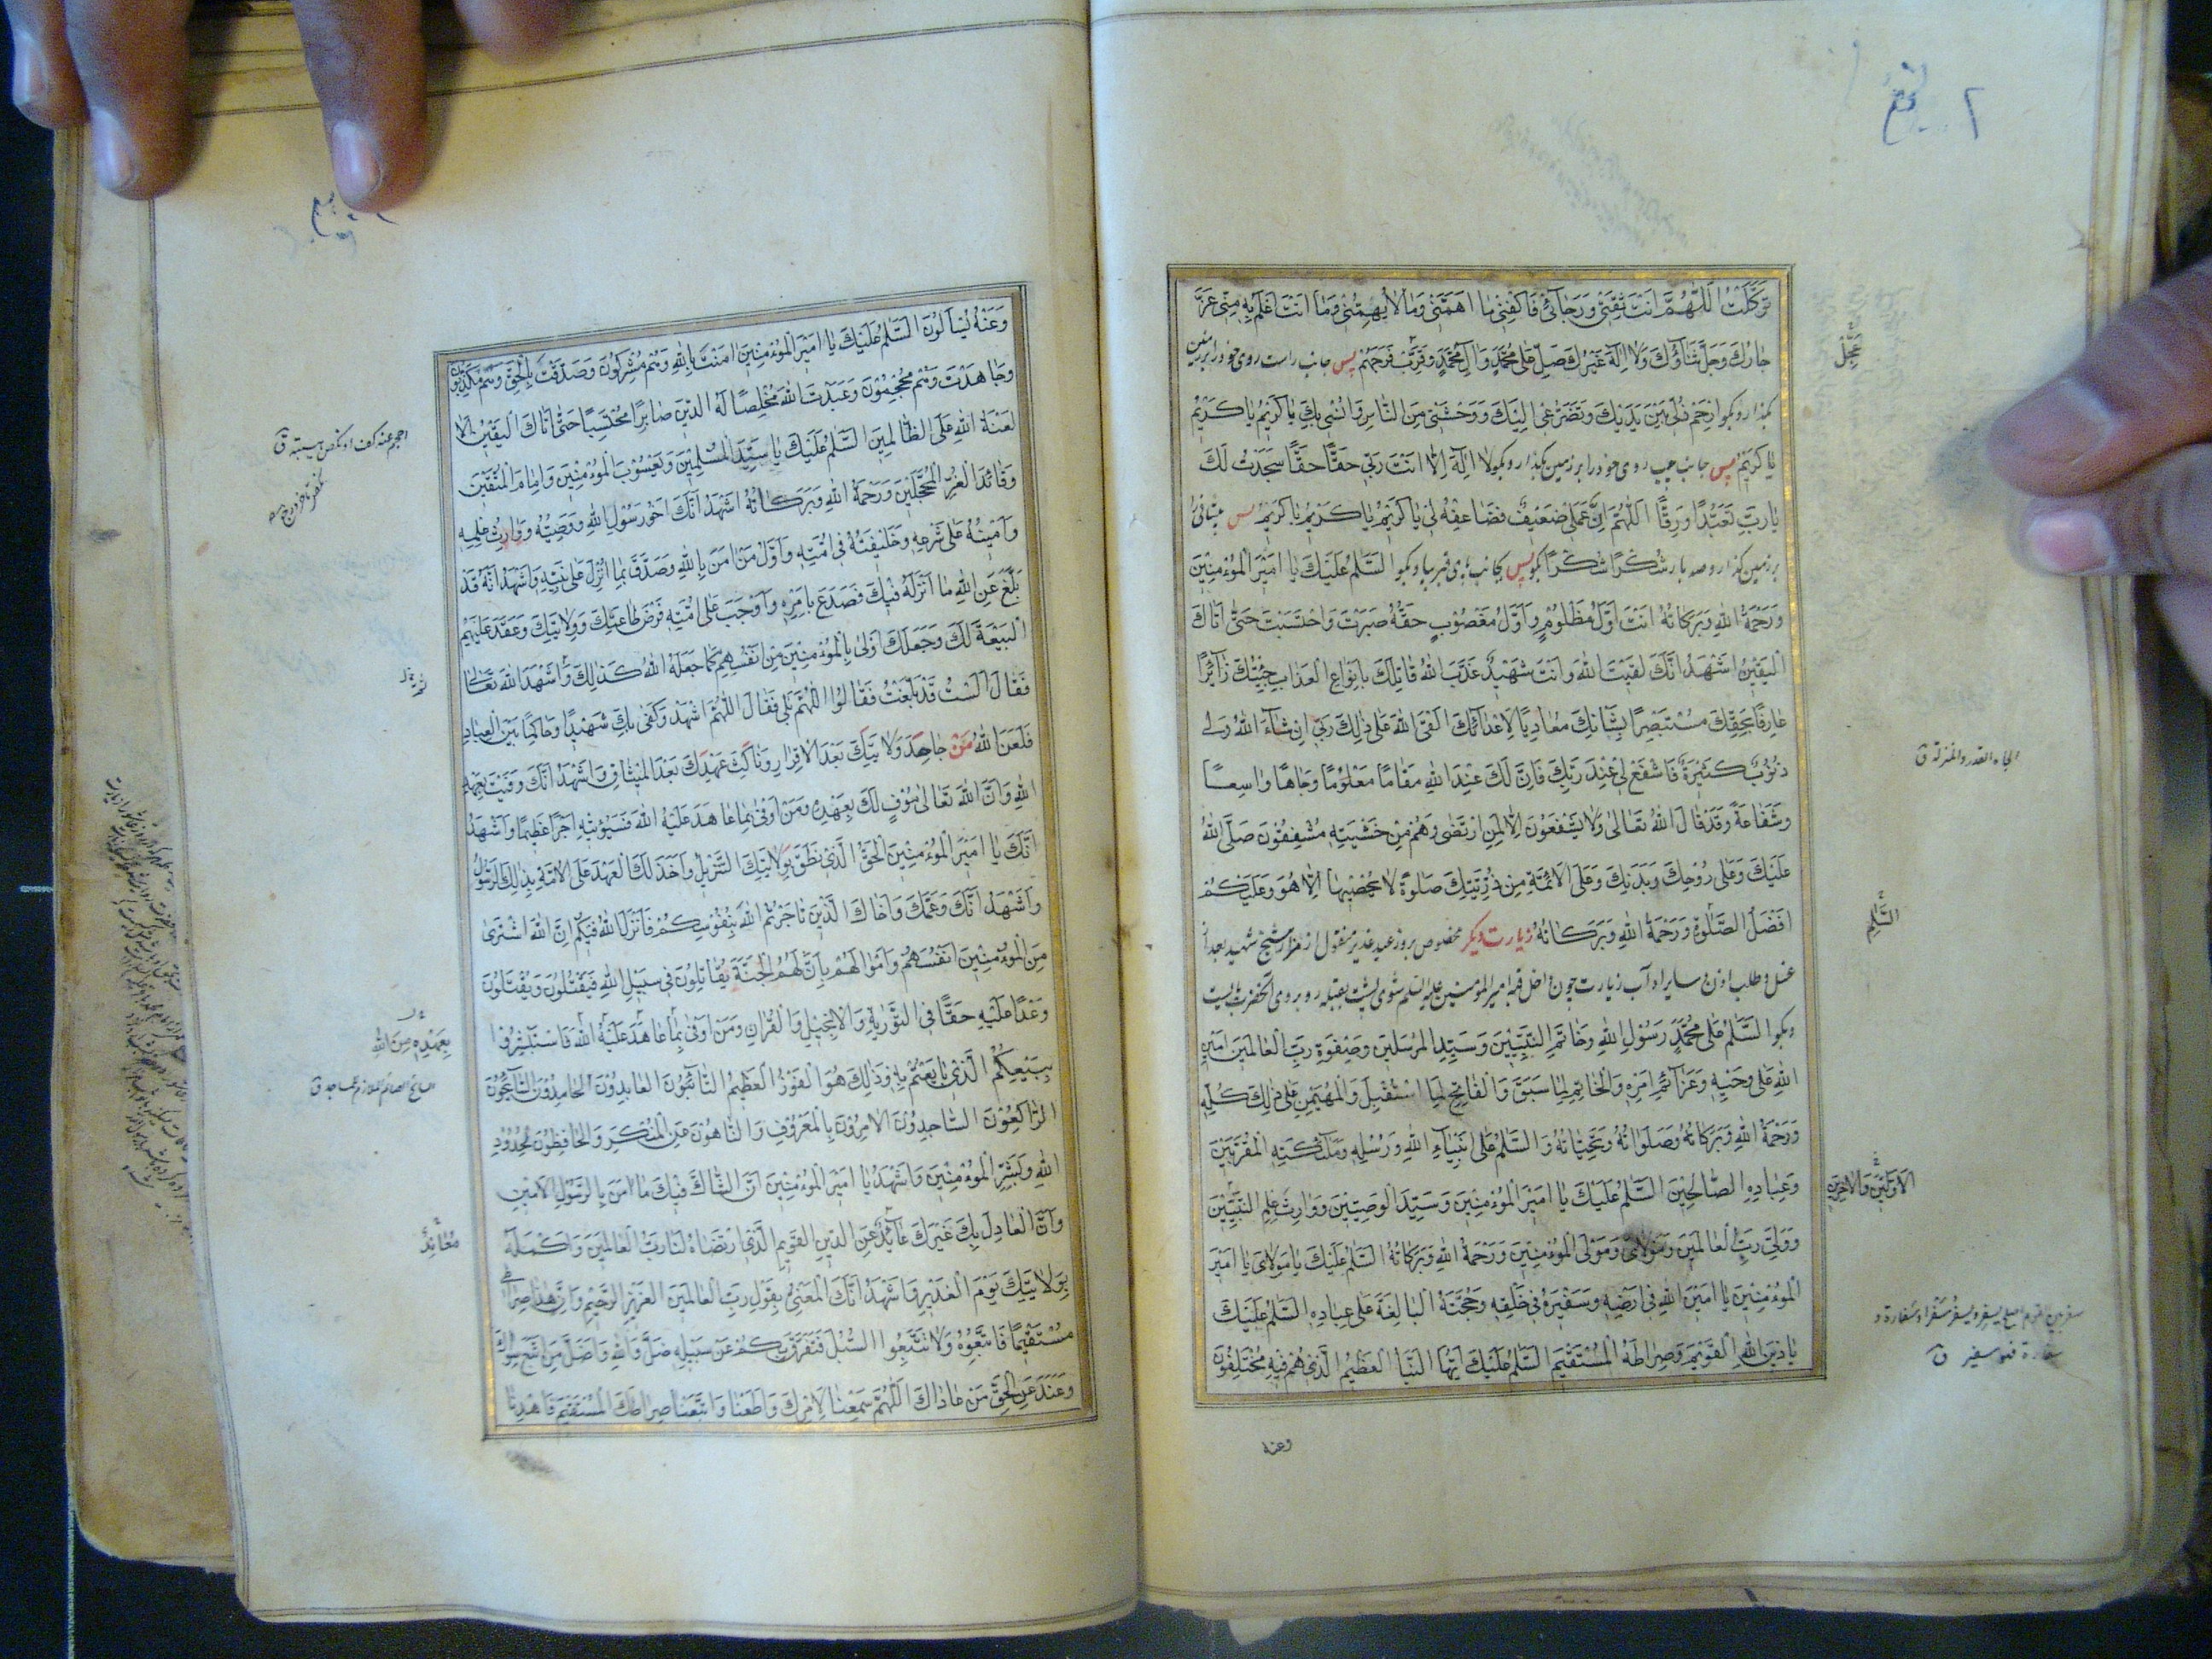 تَوَكَّلْتُ اَللّٰهُمَّ اَنْتَ ثِقَتي وَرَجائي فَاكْفِني ما اَهَمَّني وَما لا يُهِمُّني وَما اَنْتَ اَعْلَمُ بِهِ مِنّي عَزَّ
جارُكَ وَجَلَّ ثَناؤُكَ وَلا اِلٰهَ غَيْرُكَ صَلِّ عَلى مُحَمَّدٍ وَآلِ مُحَمَّدٍ وَقَرِّبْ فَرَجَهُمْ پس جانب راست روی خود را بر زمین
بگذار و بگو اِرْحَمْ ذُلّي بَيْنَ يَدَيْكَ وَتَضَرُّعي اِلَيْكَ وَوَحْشَتي مِنَ النّاسِ وَاُنْسي بِكَ يا كَريمُ يا كَريمُ
يا كَريمُ پس جانب چپ روی خود را بر زمین بگذار و بگو لا اِلٰهَ اِلّا اَنْتَ رَبّي حَقًّا حَقًّا سَجَدْتُ لَكَ
يا رَبِّ تَعَبُّدًا وَرِقًّا اَللّٰهُمَّ اِنَّ عَمَلي ضَعيفٌ فَضاعِفْهُ لي يا كَريمُ يا كَريمُ يا كَريمُ پس پیشانی
بر زمین گذار و صد بار شُكْرًا شُكْرًا بگو پس بجانب پای قبر بیا و بگو اَلسَّلامُ عَلَيْكَ يا اَميرَ الْمُؤْمِنينَ
وَرَحْمَةُ اللهِ وَبَرَكاتُهُ اَنْتَ اَوَّلُ مَظْلُومٍ وَاَوَّلُ مَغْصُوبٍ حَقُّهُ صَبَرْتَ وَاحْتَسَبْتَ حَتّى اَتاكَ
الْيَقينُ اَشْهَدُ اَنَّكَ لَقيتَ اللهَ وَاَنْتَ شَهيدٌ عَذَّبَ اللهُ قاتِلَكَ بِاَنْواعِ الْعَذابِ جِئْتُكَ زائِرًا
عارِفًا بِحَقِّكَ مُسْتَبْصِرًا بِشَأْنِكَ مُعادِيًا لِاَعْدائِكَ اَلْقَى اللهَ عَلى ذٰلِكَ رَبّي اِنْ شاءَ اللهُ وَلي
ذُنُوبٌ كَثيرَةٌ فَاشْفَعْ لي عِنْدَ رَبِّكَ فَاِنَّ لَكَ عِنْدَ اللهِ مَقامًا مَعْلُومًا وَجاهًا واسِعًا
وَشَفاعَةً وَقَدْ قالَ اللهُ تَعالى وَلا يَشْفَعُونَ اِلّا لِمَنِ ارْتَضى وَهُمْ مِنْ خَشْيَتِهِ مُشْفِقُونَ صَلَّى اللهُ
عَلَيْكَ وَعَلى رُوحِكَ وَبَدَنِكَ وَعَلَى الْاَئِمَّةِ مِنْ ذُرِّيَّتِكَ صَلٰوةً لا يُحْصيها اِلّا هُوَ وَعَلَيْكُمْ
اَفْضَلُ الصَّلٰوةِ وَرَحْمَةُ اللهِ وَبَرَكاتُهُ زیارت دیگر مخصوص بروز عید غدیر منقول از مزار شیخ شهید بعد از
غسل و طلب اذن و سایر آداب زیارت چون داخل قبه امیر المؤمنین علیه السلم شوی پشت بقبله رو بروی آنحضرت بایست
و بگو اَلسَّلامُ عَلى مُحَمَّدٍ رَسُولِ اللهِ وَخاتَمِ النَّبِيّينَ وَسَيِّدِ الْمُرْسَلينَ وَصِفْوَةِ رَبِّ الْعالَمينَ اَمينِ
اللهِ عَلى وَحْيِهِ وَعَزائِمِ اَمْرِهِ وَالْخاتِمِ لِما سَبَقَ وَالْفاتِحِ لِما اسْتُقْبِلَ وَالْمُهَيْمِنِ عَلى ذٰلِكَ كُلِّهِ
وَرَحْمَةُ اللهِ وَبَرَكاتُهُ وَصَلَواتُهُ وَتَحِيّاتُهُ وَالسَّلامُ عَلى اَنْبِياءِ اللهِ وَرُسُلِهِ وَمَلائِكَتِهِ الْمُقَرَّبينَ
وَعِبادِهِ الصّالِحينَ اَلسَّلامُ عَلَيْكَ يا اَميرَ الْمُؤْمِنينَ وَسَيِّدَ الْوَصِيّينَ وَوارِثَ عِلْمِ النَّبِيّينَ
وَوَلِيَّ رَبِّ الْعالَمينَ وَمَوْلايَ وَمَوْلَى الْمُؤْمِنينَ وَرَحْمَةُ اللهِ وَبَرَكاتُهُ اَلسَّلامُ عَلَيْكَ يا مَوْلايَ يا اَميرَ
الْمُؤْمِنينَ يا اَمينَ اللهِ في اَرْضِهِ وَسَفيرَهُ في خَلْقِهِ وَحُجَّتَهُ الْبالِغَةَ عَلى عِبادِهِ اَلسَّلامُ عَلَيْكَ
يا دينَ اللهِ الْقَويمَ وَصِراطَهُ الْمُسْتَقيمَ اَلسَّلامُ عَلَيْكَ اَيُّهَا النَّبَأُ الْعَظيمُ الَّذي هُمْ فيهِ مُخْتَلِفُونَ
وعنه
عَجِّلْ
الجاه القدر والمنزلة ق
السَّلٰم
الْاَوَّلينَ وَالْاٰخِرينَ
وَعَنْهُ يُسْأَلُونَ اَلسَّلامُ عَلَيْكَ يا اَميرَ الْمُؤْمِنينَ اٰمَنْتَ بِاللهِ وَهُمْ مُشْرِكُونَ وَصَدَّقْتَ بِالْحَقِّ وَهُمْ مُكَذِّبُونَ
وَجاهَدْتَ وَهُمْ مُحْجِمُونَ وَعَبَدْتَ اللهَ مُخْلِصًا لَهُ الدّينَ صابِرًا مُحْتَسِبًا حَتّى اَتاكَ الْيَقينُ اَلا
لَعْنَةُ اللهِ عَلَى الظّالِمينَ اَلسَّلامُ عَلَيْكَ يا سَيِّدَ الْمُسْلِمينَ وَيَعْسُوبَ الْمُؤْمِنينَ وَاِمامَ الْمُتَّقينَ
وَقائِدَ الْغُرِّ الْمُحَجَّلينَ وَرَحْمَةُ اللهِ وَبَرَكاتُهُ اَشْهَدُ اَنَّكَ اَخُو رَسُولِ اللهِ وَوَصِيُّهُ وَوارِثُ عِلْمِهِ
وَاَمينُهُ عَلى شَرْعِهِ وَخَليفَتُهُ في اُمَّتِهِ وَاَوَّلُ مَنْ اٰمَنَ بِاللهِ وَصَدَّقَ بِما اُنْزِلَ عَلى نَبِيِّهِ وَاَشْهَدُ اَنَّهُ قَدْ
بَلَّغَ عَنِ اللهِ ما اَنْزَلَهُ فيكَ فَصَدَعَ بِاَمْرِهِ وَاَوْجَبَ عَلى اُمَّتِهِ فَرْضَ طاعَتِكَ وَوِلايَتِكَ وَعَقَدَ عَلَيْهِمُ
الْبَيْعَةَ لَكَ وَجَعَلَكَ اَوْلى بِالْمُؤْمِنينَ مِنْ اَنْفُسِهِمْ كَما جَعَلَهُ اللهُ كَذٰلِكَ وَاَشْهَدَ اللهَ تَعالى
فَقالَ اَلَسْتُ قَدْ بَلَّغْتُ فَقالُوا اَللّٰهُمَّ بَلى فَقالَ اَللّٰهُمَّ اشْهَدْ وَكَفى بِكَ شَهيدًا وَحاكِمًا بَيْنَ الْعِبادِ
فَلَعَنَ اللهُ مَنْ جاحِدَ وِلايَتِكَ بَعْدَ الْاِقْرارِ وَناكِثَ عَهْدِكَ بَعْدَ الْميثاقِ وَاَشْهَدُ اَنَّكَ وَفَيْتَ بِعَهْدِ
اللهِ وَاَنَّ اللهَ تَعالى مُوفٍ لَكَ بِعَهْدِهِ وَمَنْ اَوْفى بِما عاهَدَ عَلَيْهُ اللهَ فَسَيُؤْتيهِ اَجْرًا عَظيمًا وَاَشْهَدُ
اَنَّكَ يا اَميرَ الْمُؤْمِنينَ الْحَقُّ الَّذي نَطَقَ بِوِلايَتِكَ التَّنْزيلُ وَاَخَذَ لَكَ الْعَهْدَ عَلَى الْاُمَّةِ بِذٰلِكَ الرَّسُولُ
وَاَشْهَدُ اَنَّكَ وَعَمَّكَ وَاَخاكَ الَّذينَ تاجَرْتُمُ اللهَ بِنُفُوسِكُمْ فَاَنْزَلَ اللهُ فيكُمْ اِنَّ اللهَ اشْتَرى
مِنَ الْمُؤْمِنينَ اَنْفُسَهُمْ وَاَمْوالَهُمْ بِاَنَّ لَهُمُ الْجَنَّةَ يُقاتِلُونَ في سَبيلِ اللهِ فَيَقْتُلُونَ وَيُقْتَلُونَ
وَعْدًا عَلَيْهِ حَقًّا فِي التَّوْرٰيةِ وَالْاِنْجيلِ وَالْقُرْاٰنِ وَمَنْ اَوْفى بِما عاهَدَ عَلَيْهُ اللهَ فَاسْتَبْشِرُوا
بِبَيْعِكُمُ الَّذي بايَعْتُمْ بِهِ وَذٰلِكَ هُوَ الْفَوْزُ الْعَظيمُ اَلتّائِبُونَ الْعابِدُونَ الْحامِدُونَ السّائِحُونَ
الرّاكِعُونَ السّاجِدُونَ الْاٰمِرُونَ بِالْمَعْرُوفِ وَالنّاهُونَ عَنِ الْمُنْكَرِ وَالْحافِظُونَ لِحُدُودِ
اللهِ وَبَشِّرِ الْمُؤْمِنينَ وَاَشْهَدُ يا اَميرَ الْمُؤْمِنينَ اَنَّ الشّاكَّ فيكَ ما اٰمَنَ بِالرَّسُولِ الْاَمينِ
وَاَنَّ الْعادِلَ بِكَ غَيْرَكَ عائِدٌ عَنِ الدّينِ الْقَويمِ الَّذِي ارْتَضاهُ لَنا رَبُّ الْعالَمينَ وَاَكْمَلَهُ
بِوِلايَتِكَ يَوْمَ الْغَديرِ وَاَشْهَدُ اَنَّكَ الْمَعْنِيُّ بِقَوْلِ رَبِّ الْعالَمينَ الْعَزيزِ الرَّحيمِ وَاَنَّ هٰذا صِراطي
مُسْتَقيمًا فَاتَّبِعُوهُ وَلا تَتَّبِعُوا السُّبُلَ فَتَفَرَّقَ بِكُمْ عَنْ سَبيلِهِ ضَلَّ وَاللهِ وَاَضَلَّ مَنِ اتَّبَعَ سِواكَ
وَعَنَدَ عَنِ الْحَقِّ مَنْ عاداكَ اَللّٰهُمَّ سَمِعْنا لِاَمْرِكَ وَاَطَعْنا وَاتَّبَعْنا صِراطَكَ الْمُسْتَقيمَ فَاهْدِنا
بِعَهْدِهِ مِنَ اللهِ
السائح الصائم الملازم للمساجد ق
مُعانِدٌ